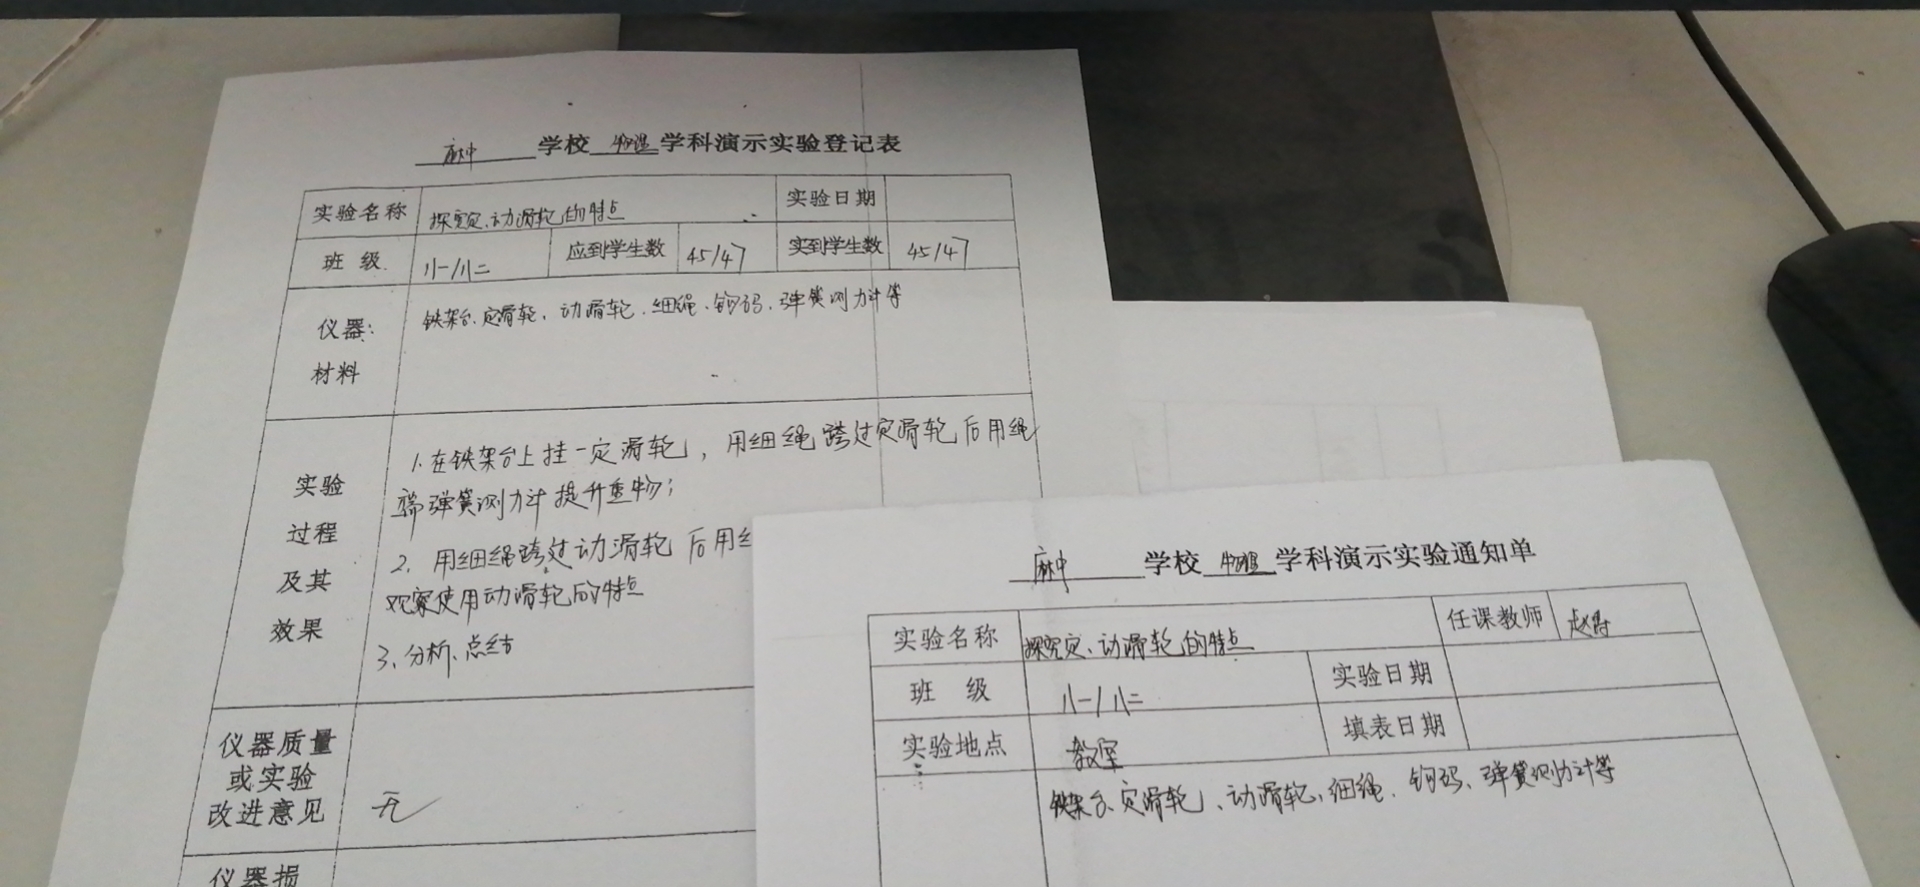 麻中 学校 物理 学科演示实验登记表
实验名称 探究定、动滑轮的特点 实验日期
班 级 八一/八二 应到学生数 45/47 实到学生数 45/47
仪器:
材料
铁架台、定滑轮、动滑轮、细绳、钩码、弹簧测力计等
实验
过程
及其
效果
1、在铁架台上挂一定滑轮,用细绳跨过定滑轮后用绳
端弹簧测力计提升重物;
2、用细绳跨过动滑轮后用
观察使用动滑轮的特点
3、分析、总结
仪器质量
或实验
改进意见
无
仪器损
麻中 学校 物理 学科演示实验通知单
实验名称 探究定、动滑轮的特点 任课教师 赵
班 级 八一/八二 实验日期
实验地点 教室 填表日期
铁架台、定滑轮、动滑轮、细绳、钩码、弹簧测力计等